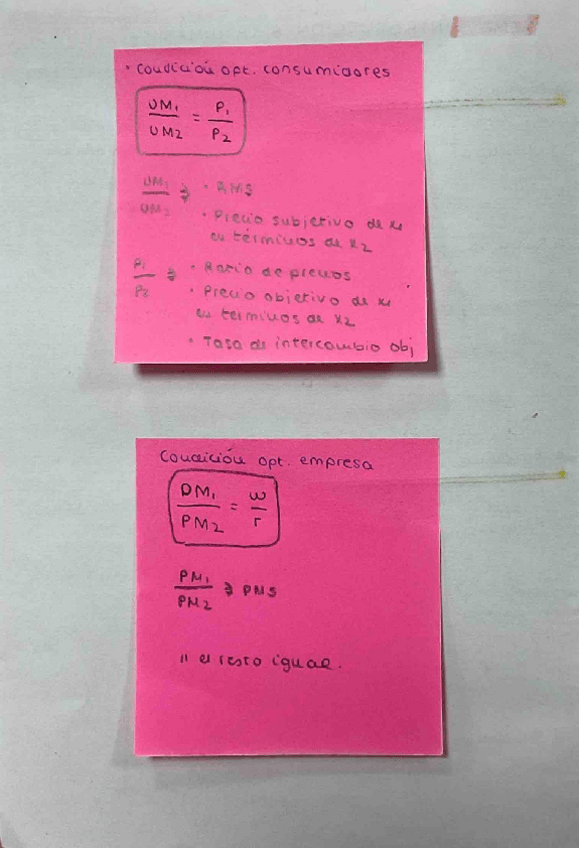 · Condición opt. consumidores
UM₁ / UM2 = P₁ / P₂
UM₁ / UM₂ ⇒ · RMS
· Precio subjetivo de x₁
en términos de x₂
P₁ / P₂ ⇒ · Ratio de precios
· Precio objetivo de x₁
en términos de x₂
· Tasa de intercambio obj
Condición opt. empresa
PM₁ / PM₂ = w / r
PM₁ / PM₂ ⇒ PMS
" el resto igual.